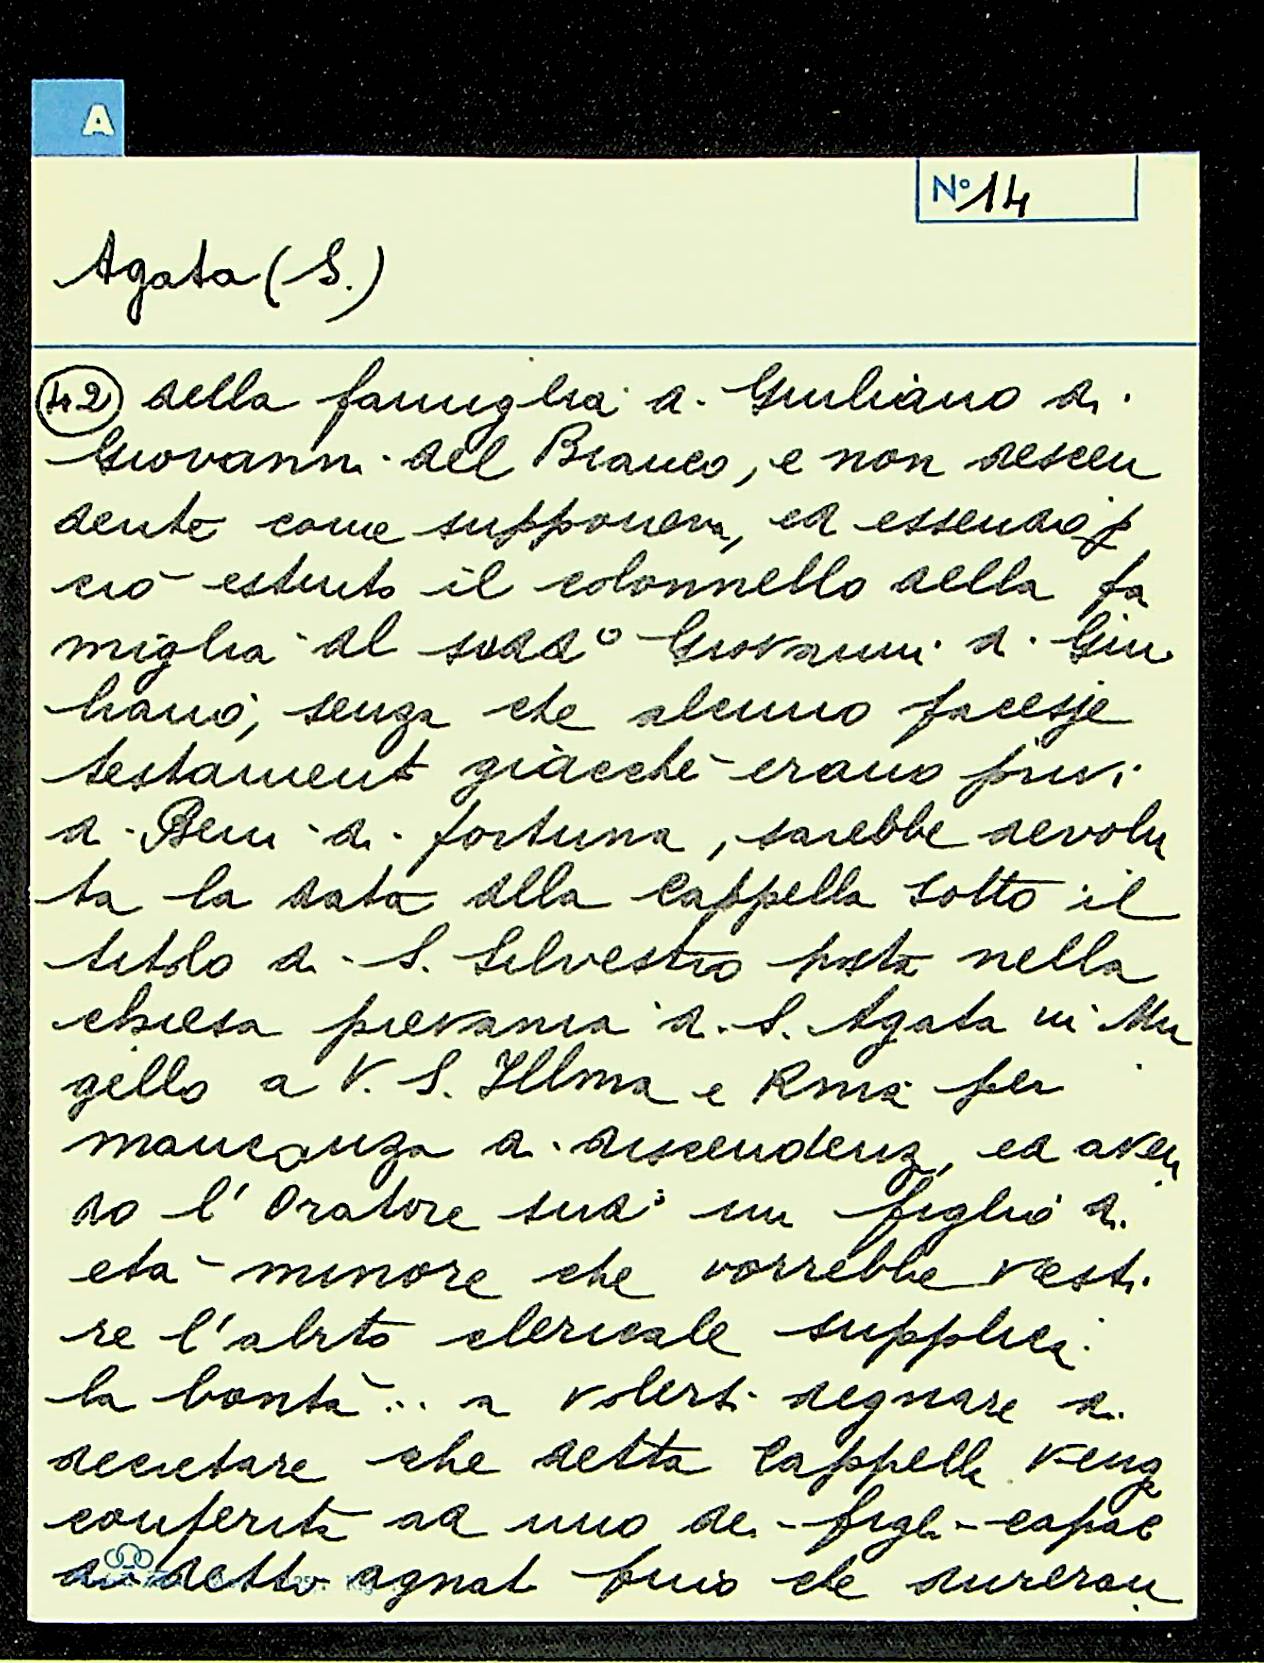 A
N° 14
Agata (S.)
42 della famiglia di Giuliano di
Giovanni del Bianco, e non descen
dente come supponeva, ed essendo p
ciò estinto il colonnello della fa
miglia del sudd° Giovanni di Giu
liano, senza che alcuno facesse
testament giacché erano privi
di Beni di fortuna, sarebbe devolu
ta la data della Cappella sotto il
titolo di S. Silvestro posta nella
chiesa pievania di S. Agata in Mu
gello a V. S. Illma e Rma per
mancanza di discendenz, ed aven
do l'Oratore sud: un figlio di
età minore che vorrebbe vesti
re l'abito clericale supplica
la bontà... a volersi degnare di
decretare che detta Cappella venga
conferita ad uno dei figli capac
di detto agnat fino che dureran